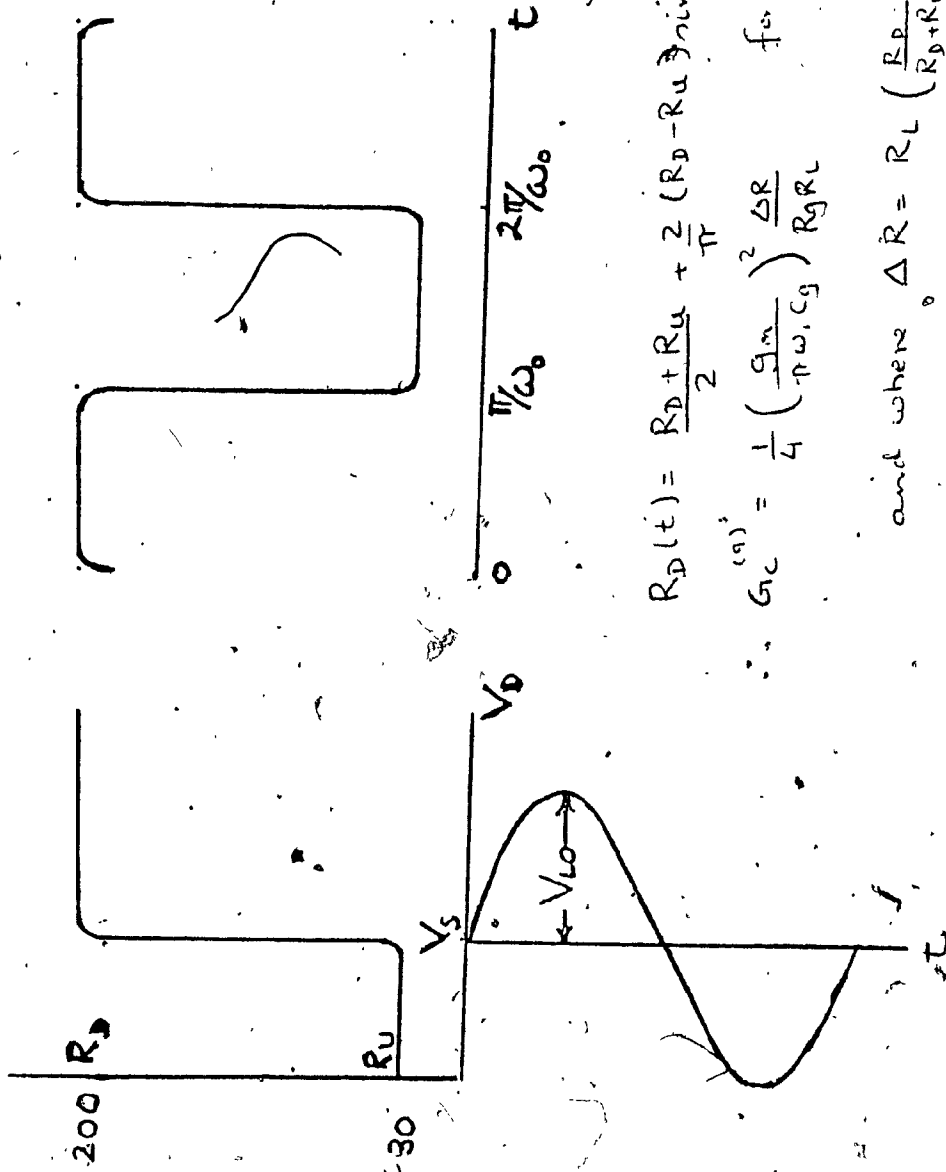 200
R_D
R_U
30
V_S
V_D
V_LO
t
0
π/ω₀
2π/ω₀
t
R_D(t) = (R_D + R_u)/2 + 2/π (R_D - R_u) sin
∴ G_c^(a) = 1/4 (g_m/(π ω₁ C_g))² ΔR/(R_g R_L)
and where ΔR = R_L (R_D/(R_D+R